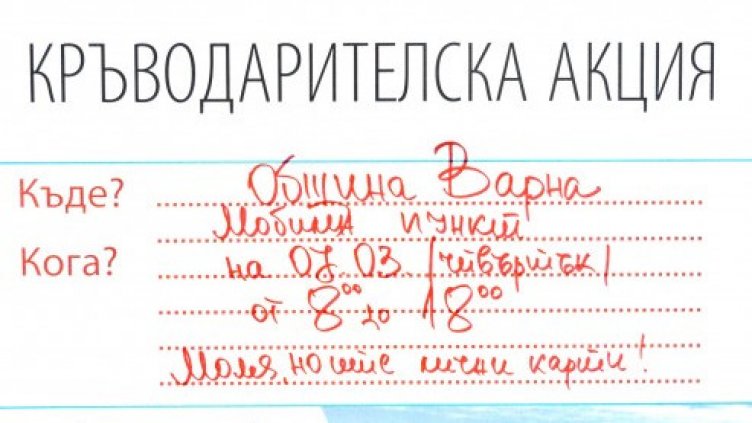 КРЪВОДАРИТЕЛСКА АКЦИЯ
Къде? Община Варна
Мобилен пункт
Кога? на 07.03. /четвъртък/
от 8⁰⁰ до 18⁰⁰
Моля, носете лични карти!